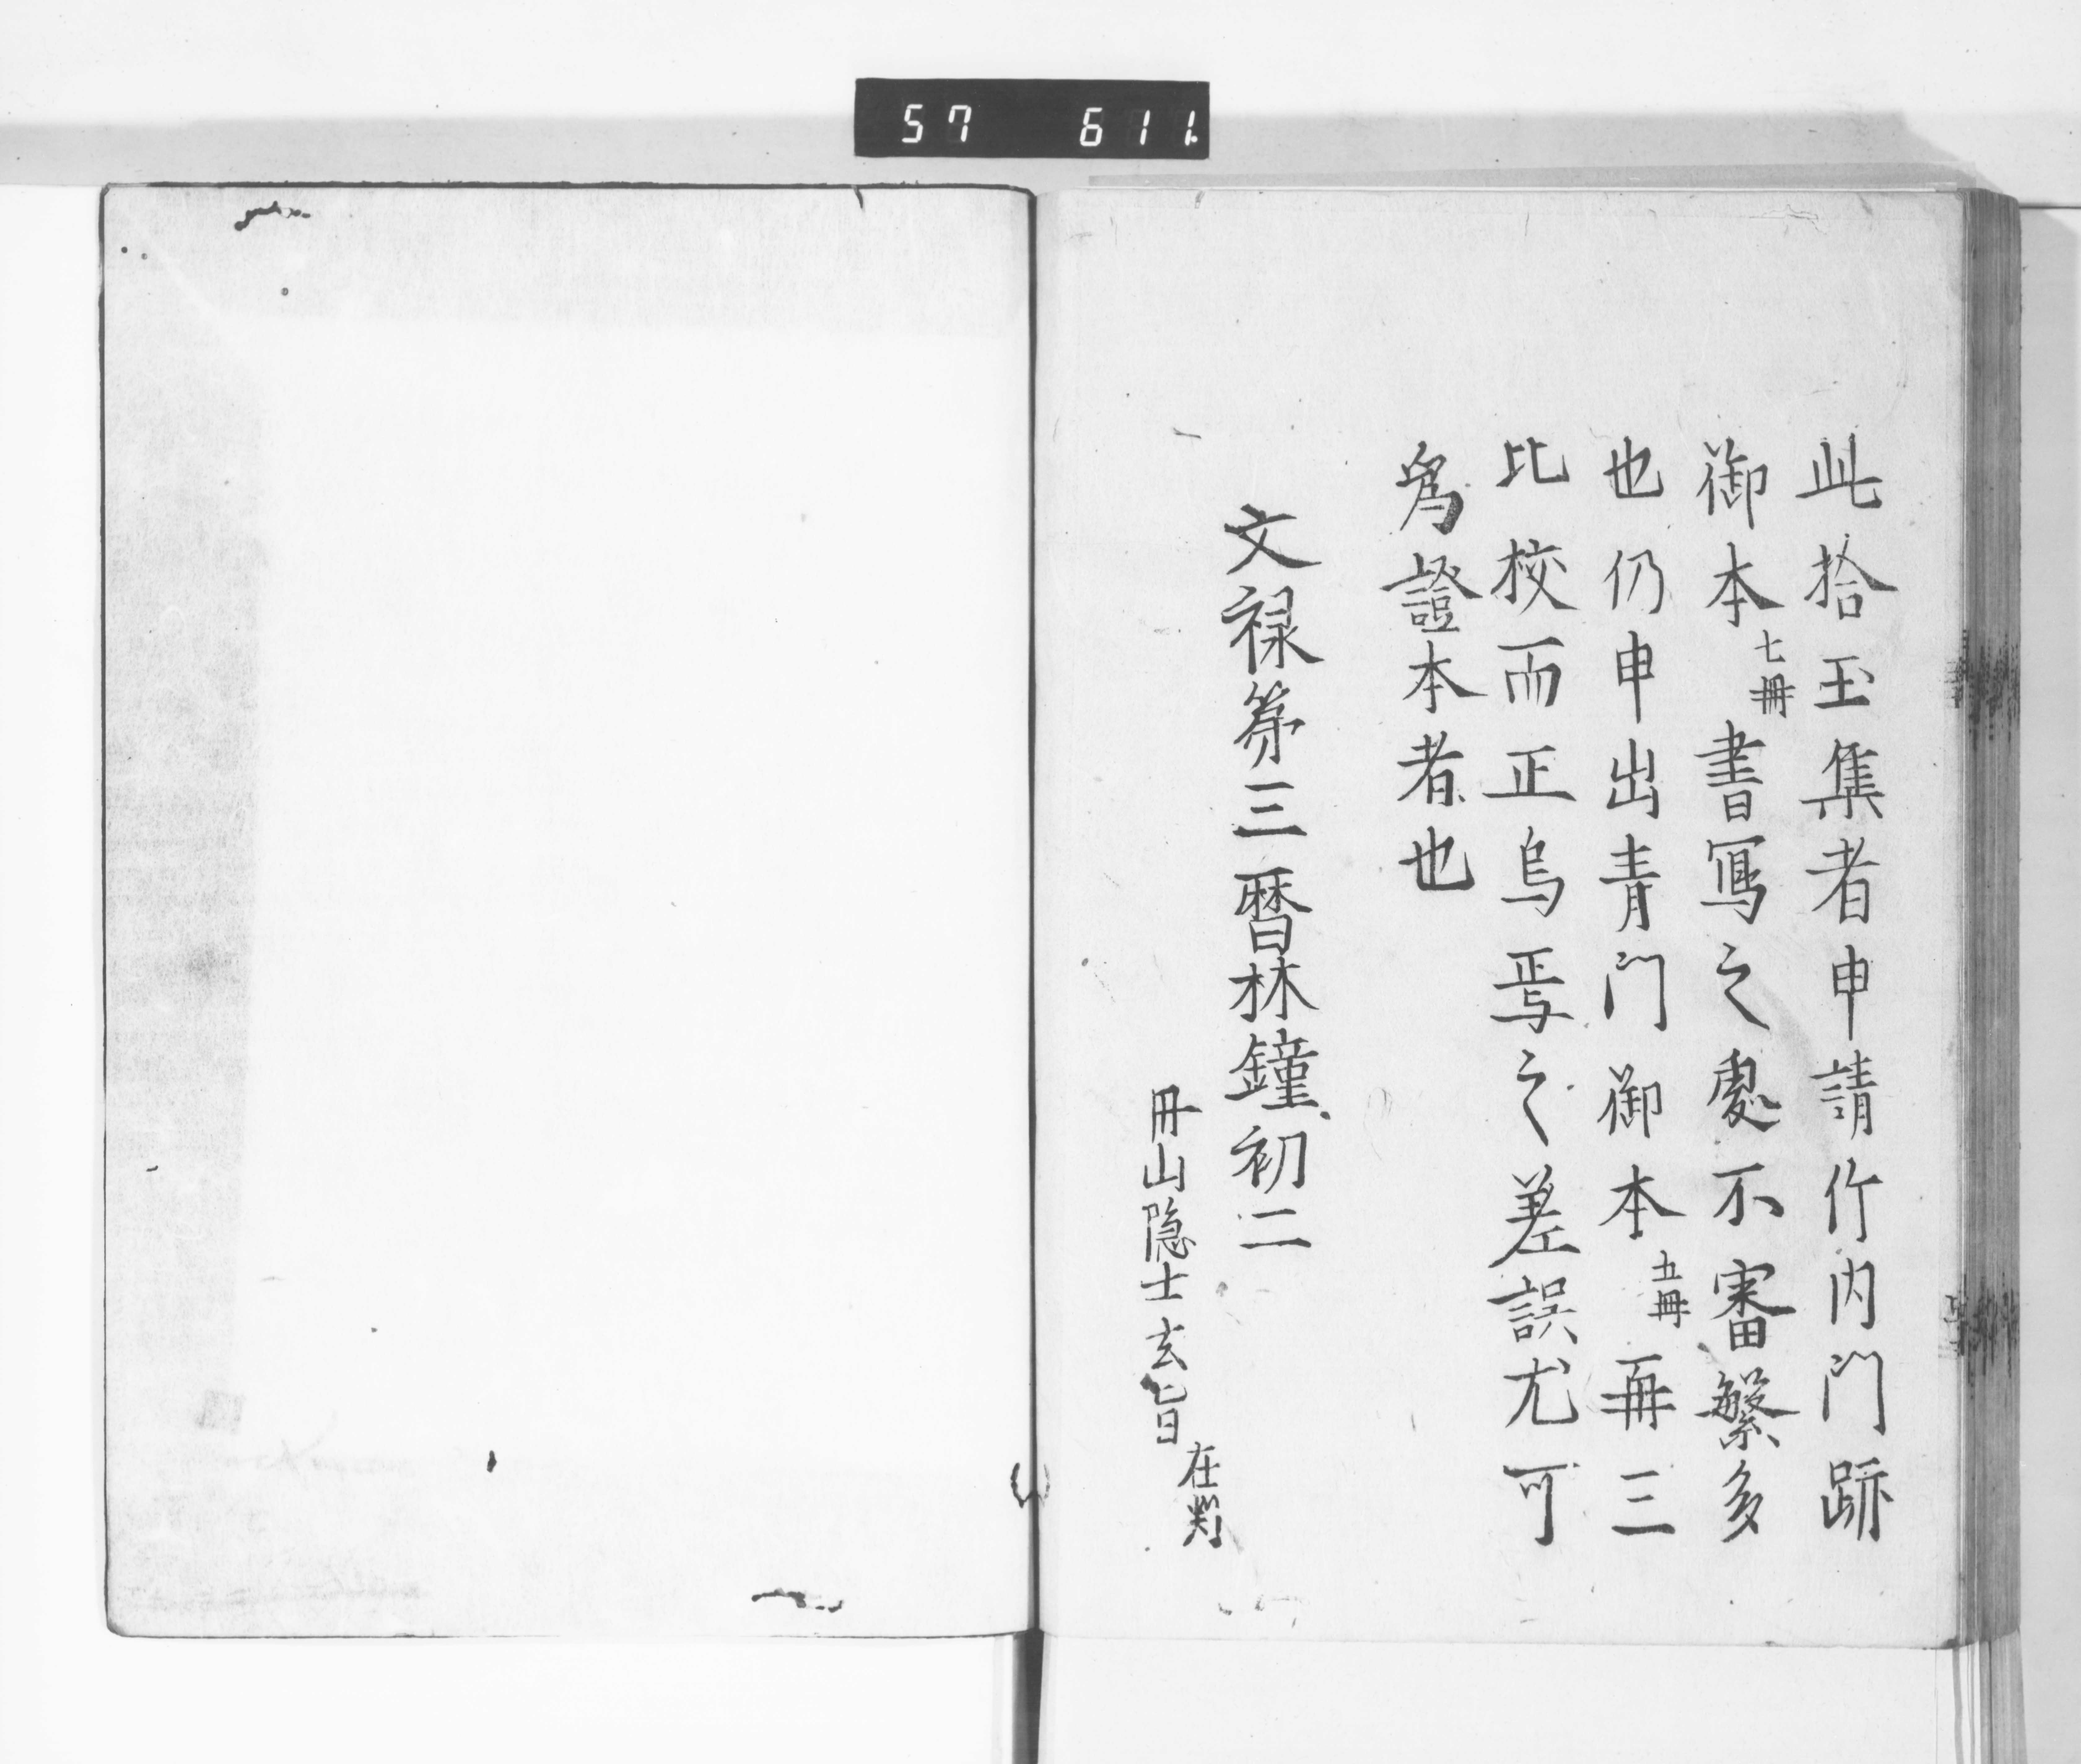 57 611
此拾玉集者申請竹内門跡
御本七冊書寫之處不審繁多
也仍申出青門御本五冊再三
比校而正烏焉之差誤尤可
爲證本者也
文禄第三暦林鐘初二
丹山隠士玄旨在判